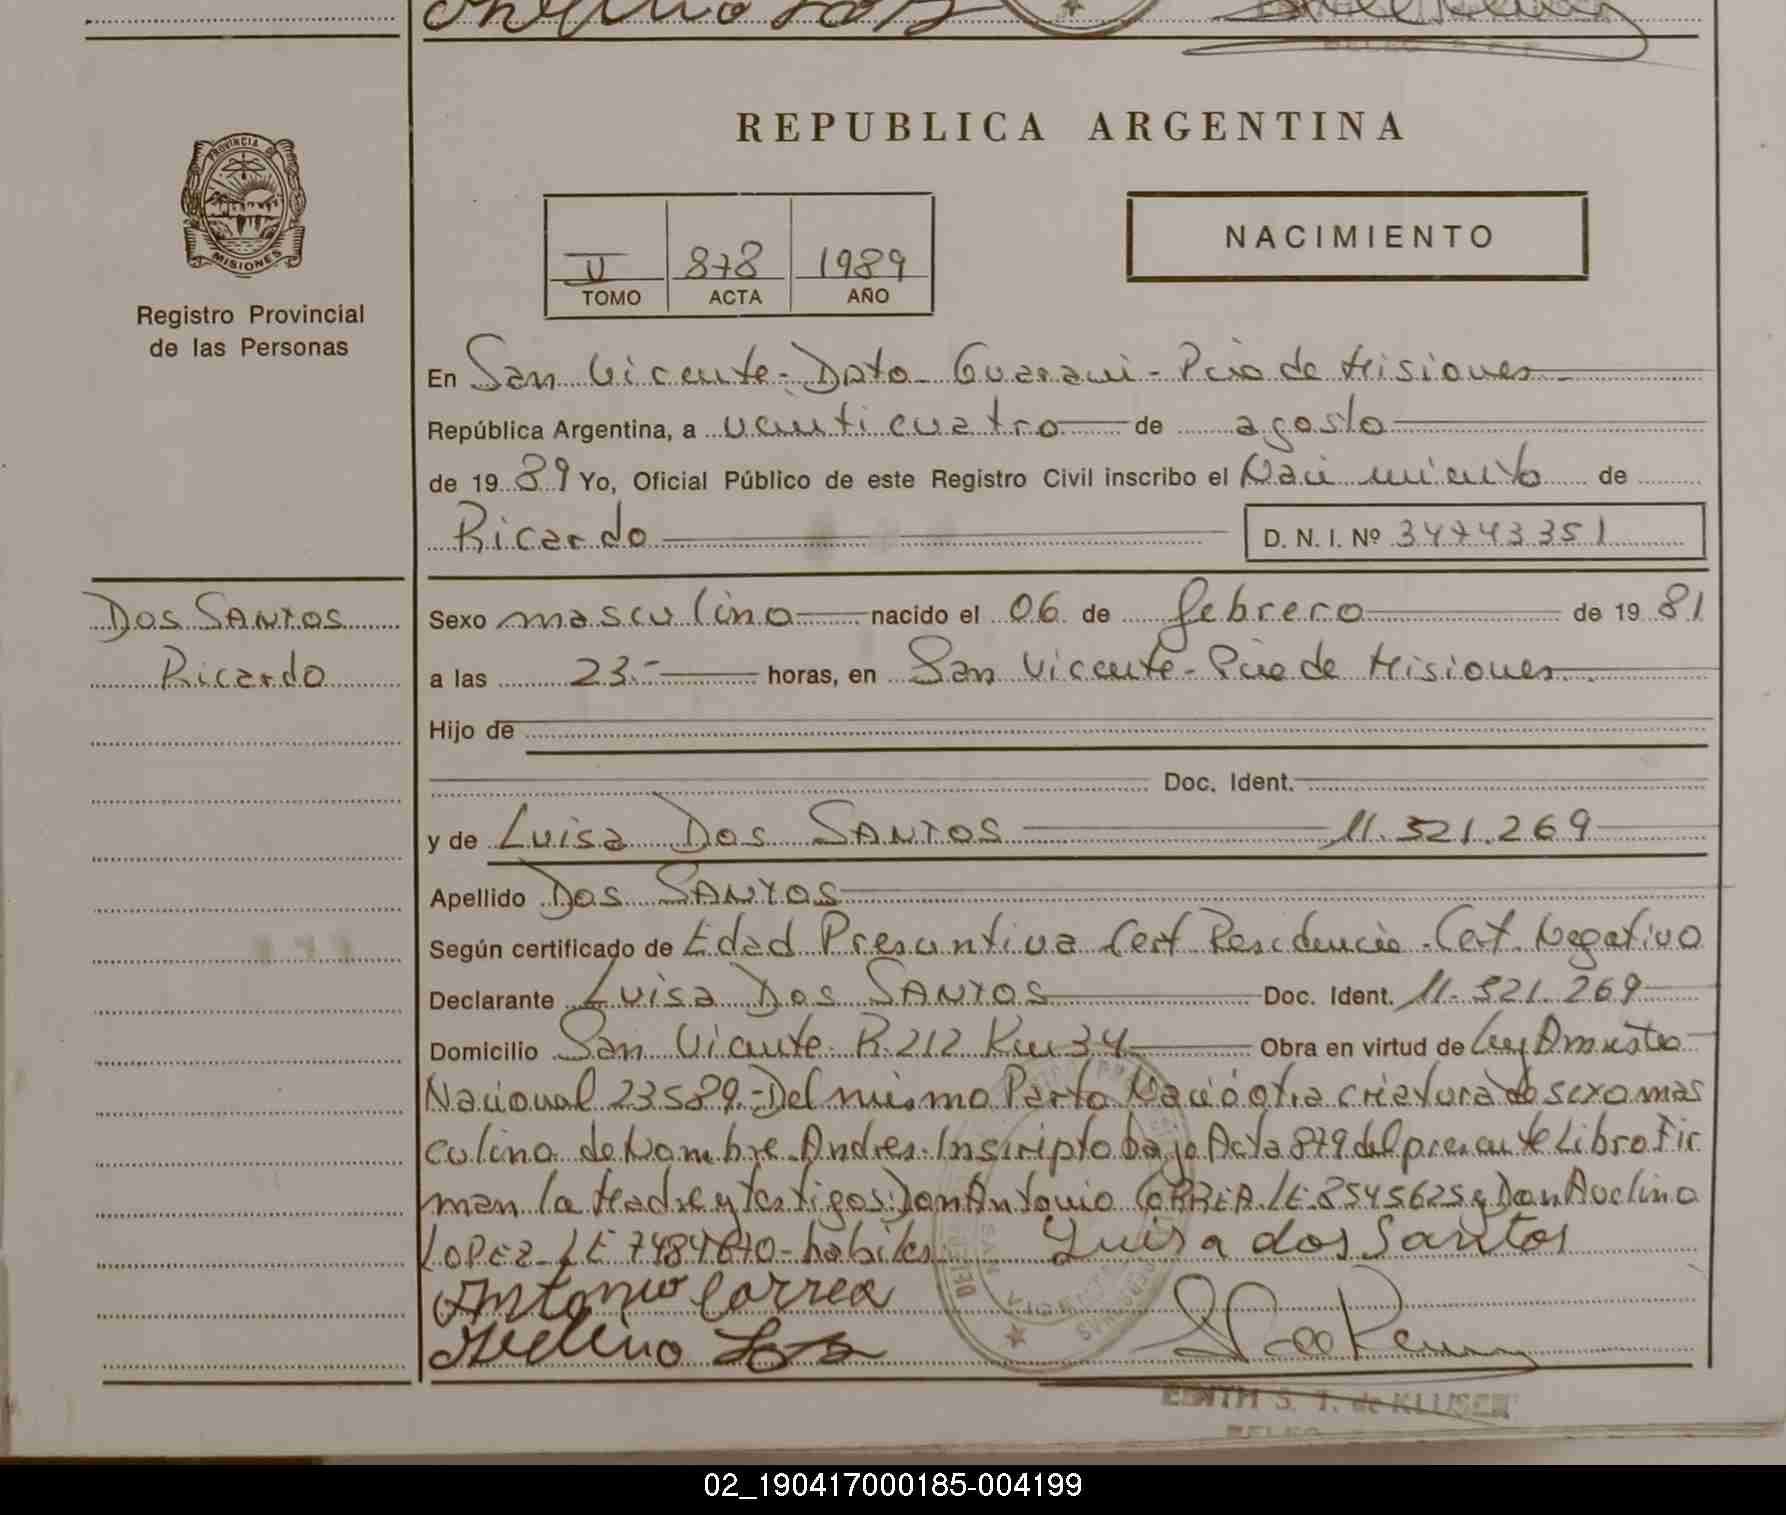 REPUBLICA ARGENTINA
PROVINCIA DE
MISIONES
Registro Provincial
de las Personas
V 878 1989
TOMO ACTA AÑO
NACIMIENTO
En San Vicente - Dpto Guarani - Pcia de Misiones
República Argentina, a veinticuatro de agosto
de 1989 Yo, Oficial Público de este Registro Civil inscribo el Nacimiento de
Ricardo D. N. I. Nº 34743351
DOS SANTOS
Ricardo
Sexo masculino nacido el 06 de febrero de 1981
a las 23.- horas, en San Vicente - Pcia de Misiones
Hijo de
Doc. Ident.
y de Luisa DOS SANTOS 11.321.269
Apellido DOS SANTOS
Según certificado de Edad Presuntiva Cert Residencia - Cert. Negativo
Declarante Luisa DOS SANTOS Doc. Ident. 11.321.269
Domicilio San Vicente R. 212 Km 34 Obra en virtud de Ley Amnistia
Nacional 23589.- Del mismo Parto Nació otra criatura de sexo mas
culino de Nombre Andres. Inscripto bajo Acta 879 del presente Libro Fir
man la Madre y testigos: Don Antonio CORREA. LE. 8545625 y Don Avelino
LOPEZ - LE 7484670 - habiles Luisa dos Santos
Antonio Correa
Avelino
EDITH S. T. de KLUSEN